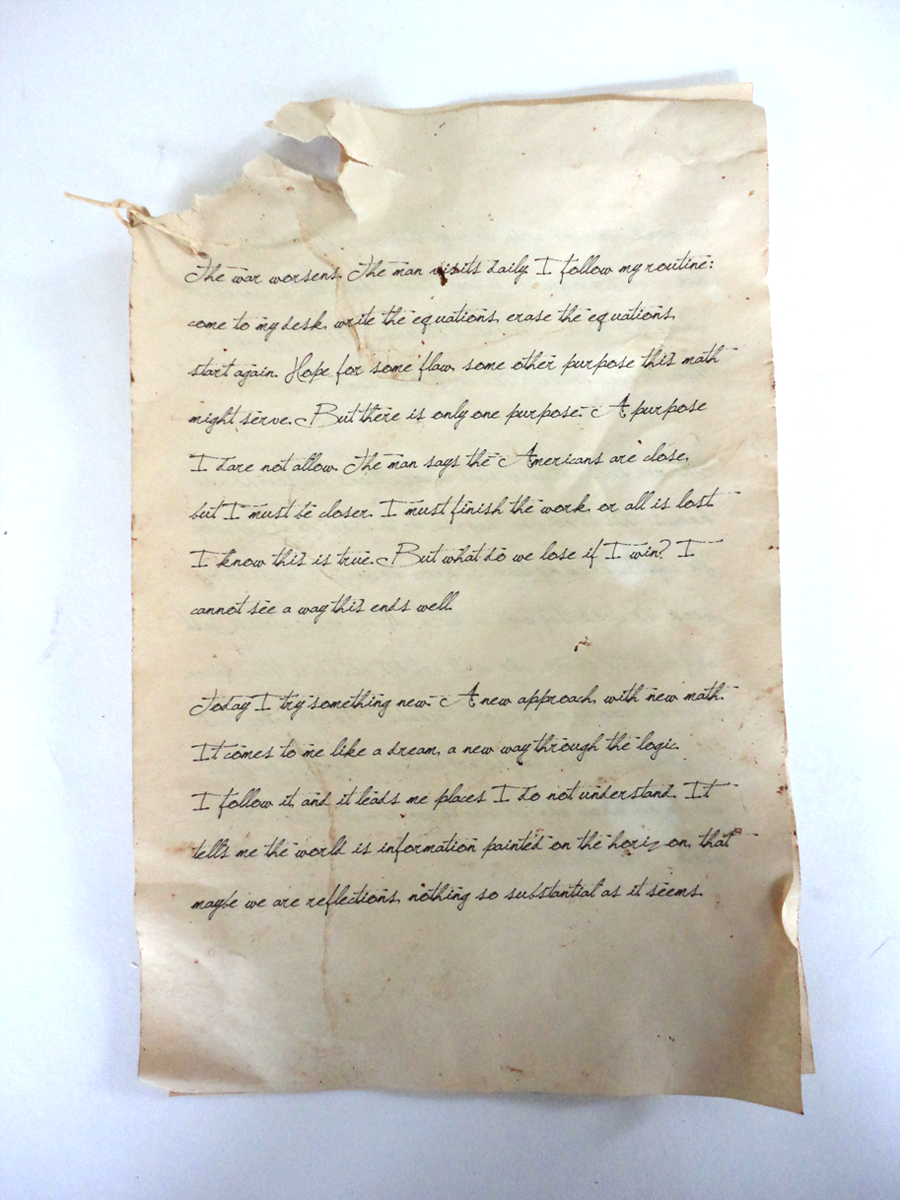 The war worsens. The man visits daily. I follow my routine:
come to my desk, write the equations, erase the equations,
start again. Hope for some flaw, some other purpose this math
might serve. But there is only one purpose. A purpose
I dare not allow. The man says the Americans are close,
but I must be closer. I must finish the work, or all is lost.
I know this is true. But what do we lose if I win? I
cannot see a way this ends well.
Today I try something new. A new approach, with new math.
It comes to me like a dream, a new way through the logic.
I follow it, and it leads me places I do not understand. It
tells me the world is information painted on the horizon, that
maybe we are reflections, nothing so substantial as it seems.